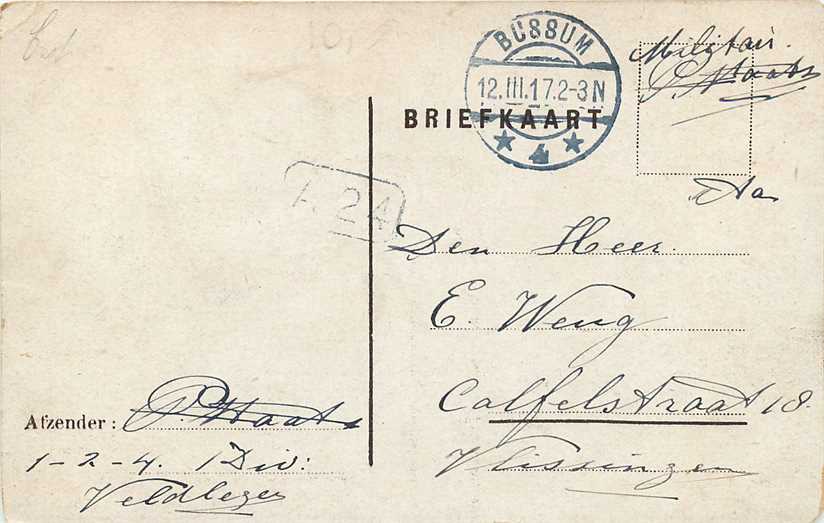 BUSSUM
12.III.17.2-3N
4
BRIEFKAART
Militair.
P. Staats
Aan
A. 24
Den Heer
E. Weug
Calfelstraat 18.
Vlissingen
Afzender: P. Staats
1-2-4. 1 Div:
Veldleger